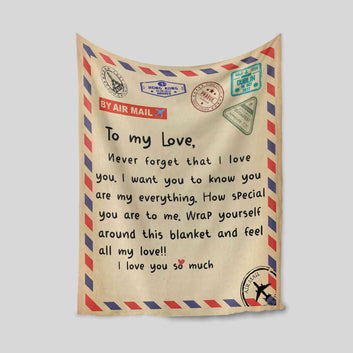 HONG KONG
DUBLIN
BY AIR MAIL
To my Love,
Never forget that I love
you. I want you to know you
are my everything. How special
you are to me. Wrap yourself
around this blanket and feel
all my love!!
I love you so much
AIR MAIL